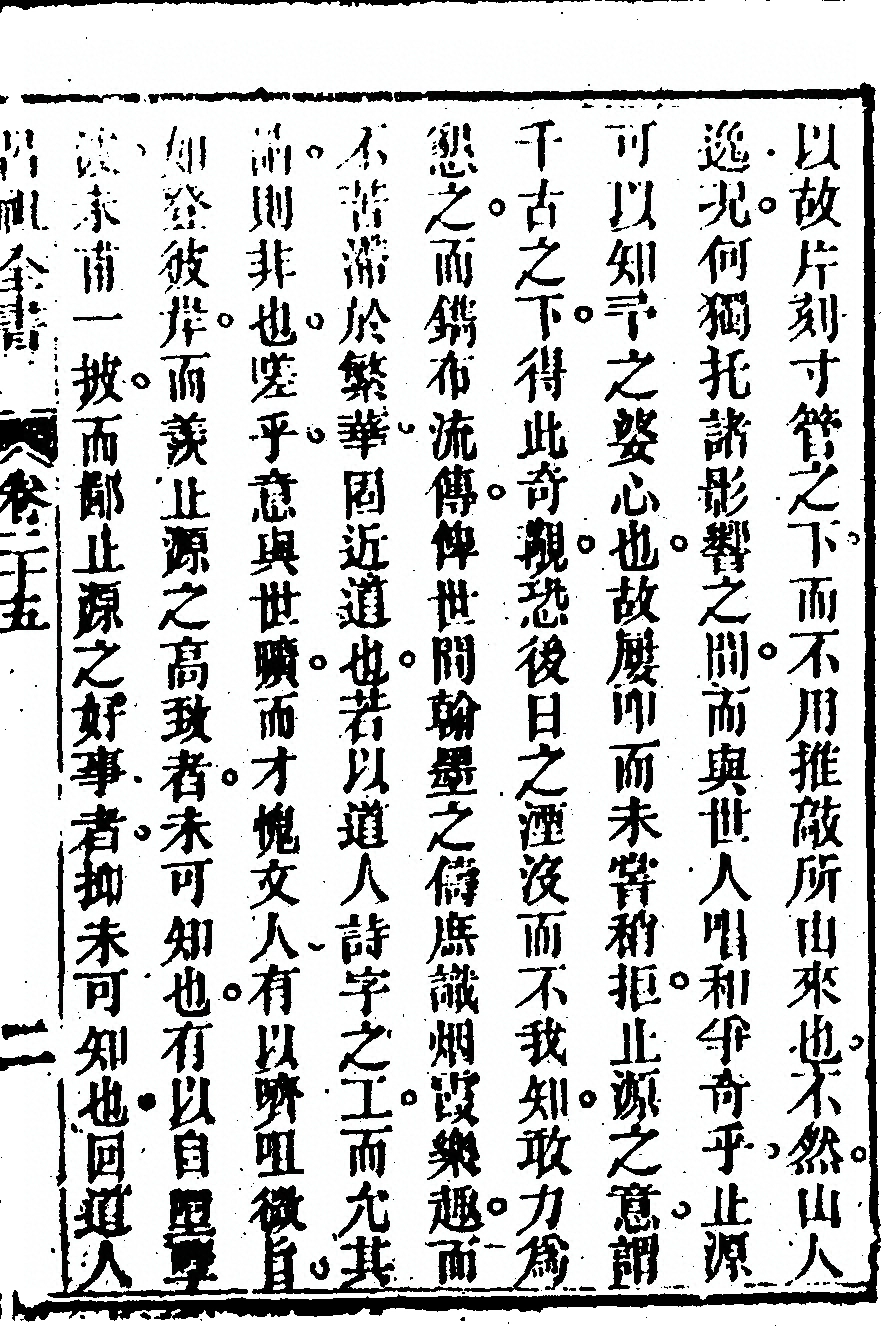 以故片刻寸管之下而不用推敲所由來也不然山人
逸況何獨托諸影響之間而與世人唱和爭奇乎止源
可以知予之婆心也故屢叩而未嘗稍拒止源之意謂
千古之下得此奇觀恐後日之湮沒而不我知敢力爲
懇之而鐫布流傳俾世間翰墨之儔庶識烟霞樂趣而
不苦溺於繁華固近道也若以道人詩字之工而允其
請則非也嗟乎意與世曠而才愧文人有以嚌咀微旨
如登彼岸而羨止源之高致者未可知也有以自堊
波未甫一披而鄙止源之好事者抑未可知也回道人
呂祖全書 卷二十五 二